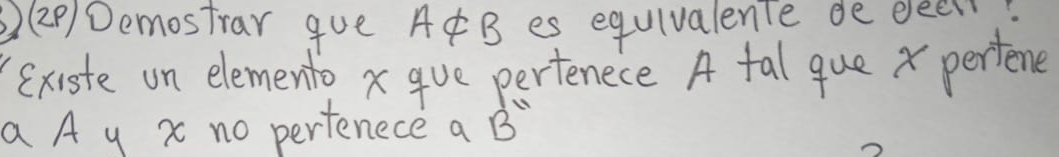 (2P) Demostrar que A ⊄ B es equivalente de decir:
"Existe un elemento x que pertenece A tal que x pertene
a A y x no pertenece a B"